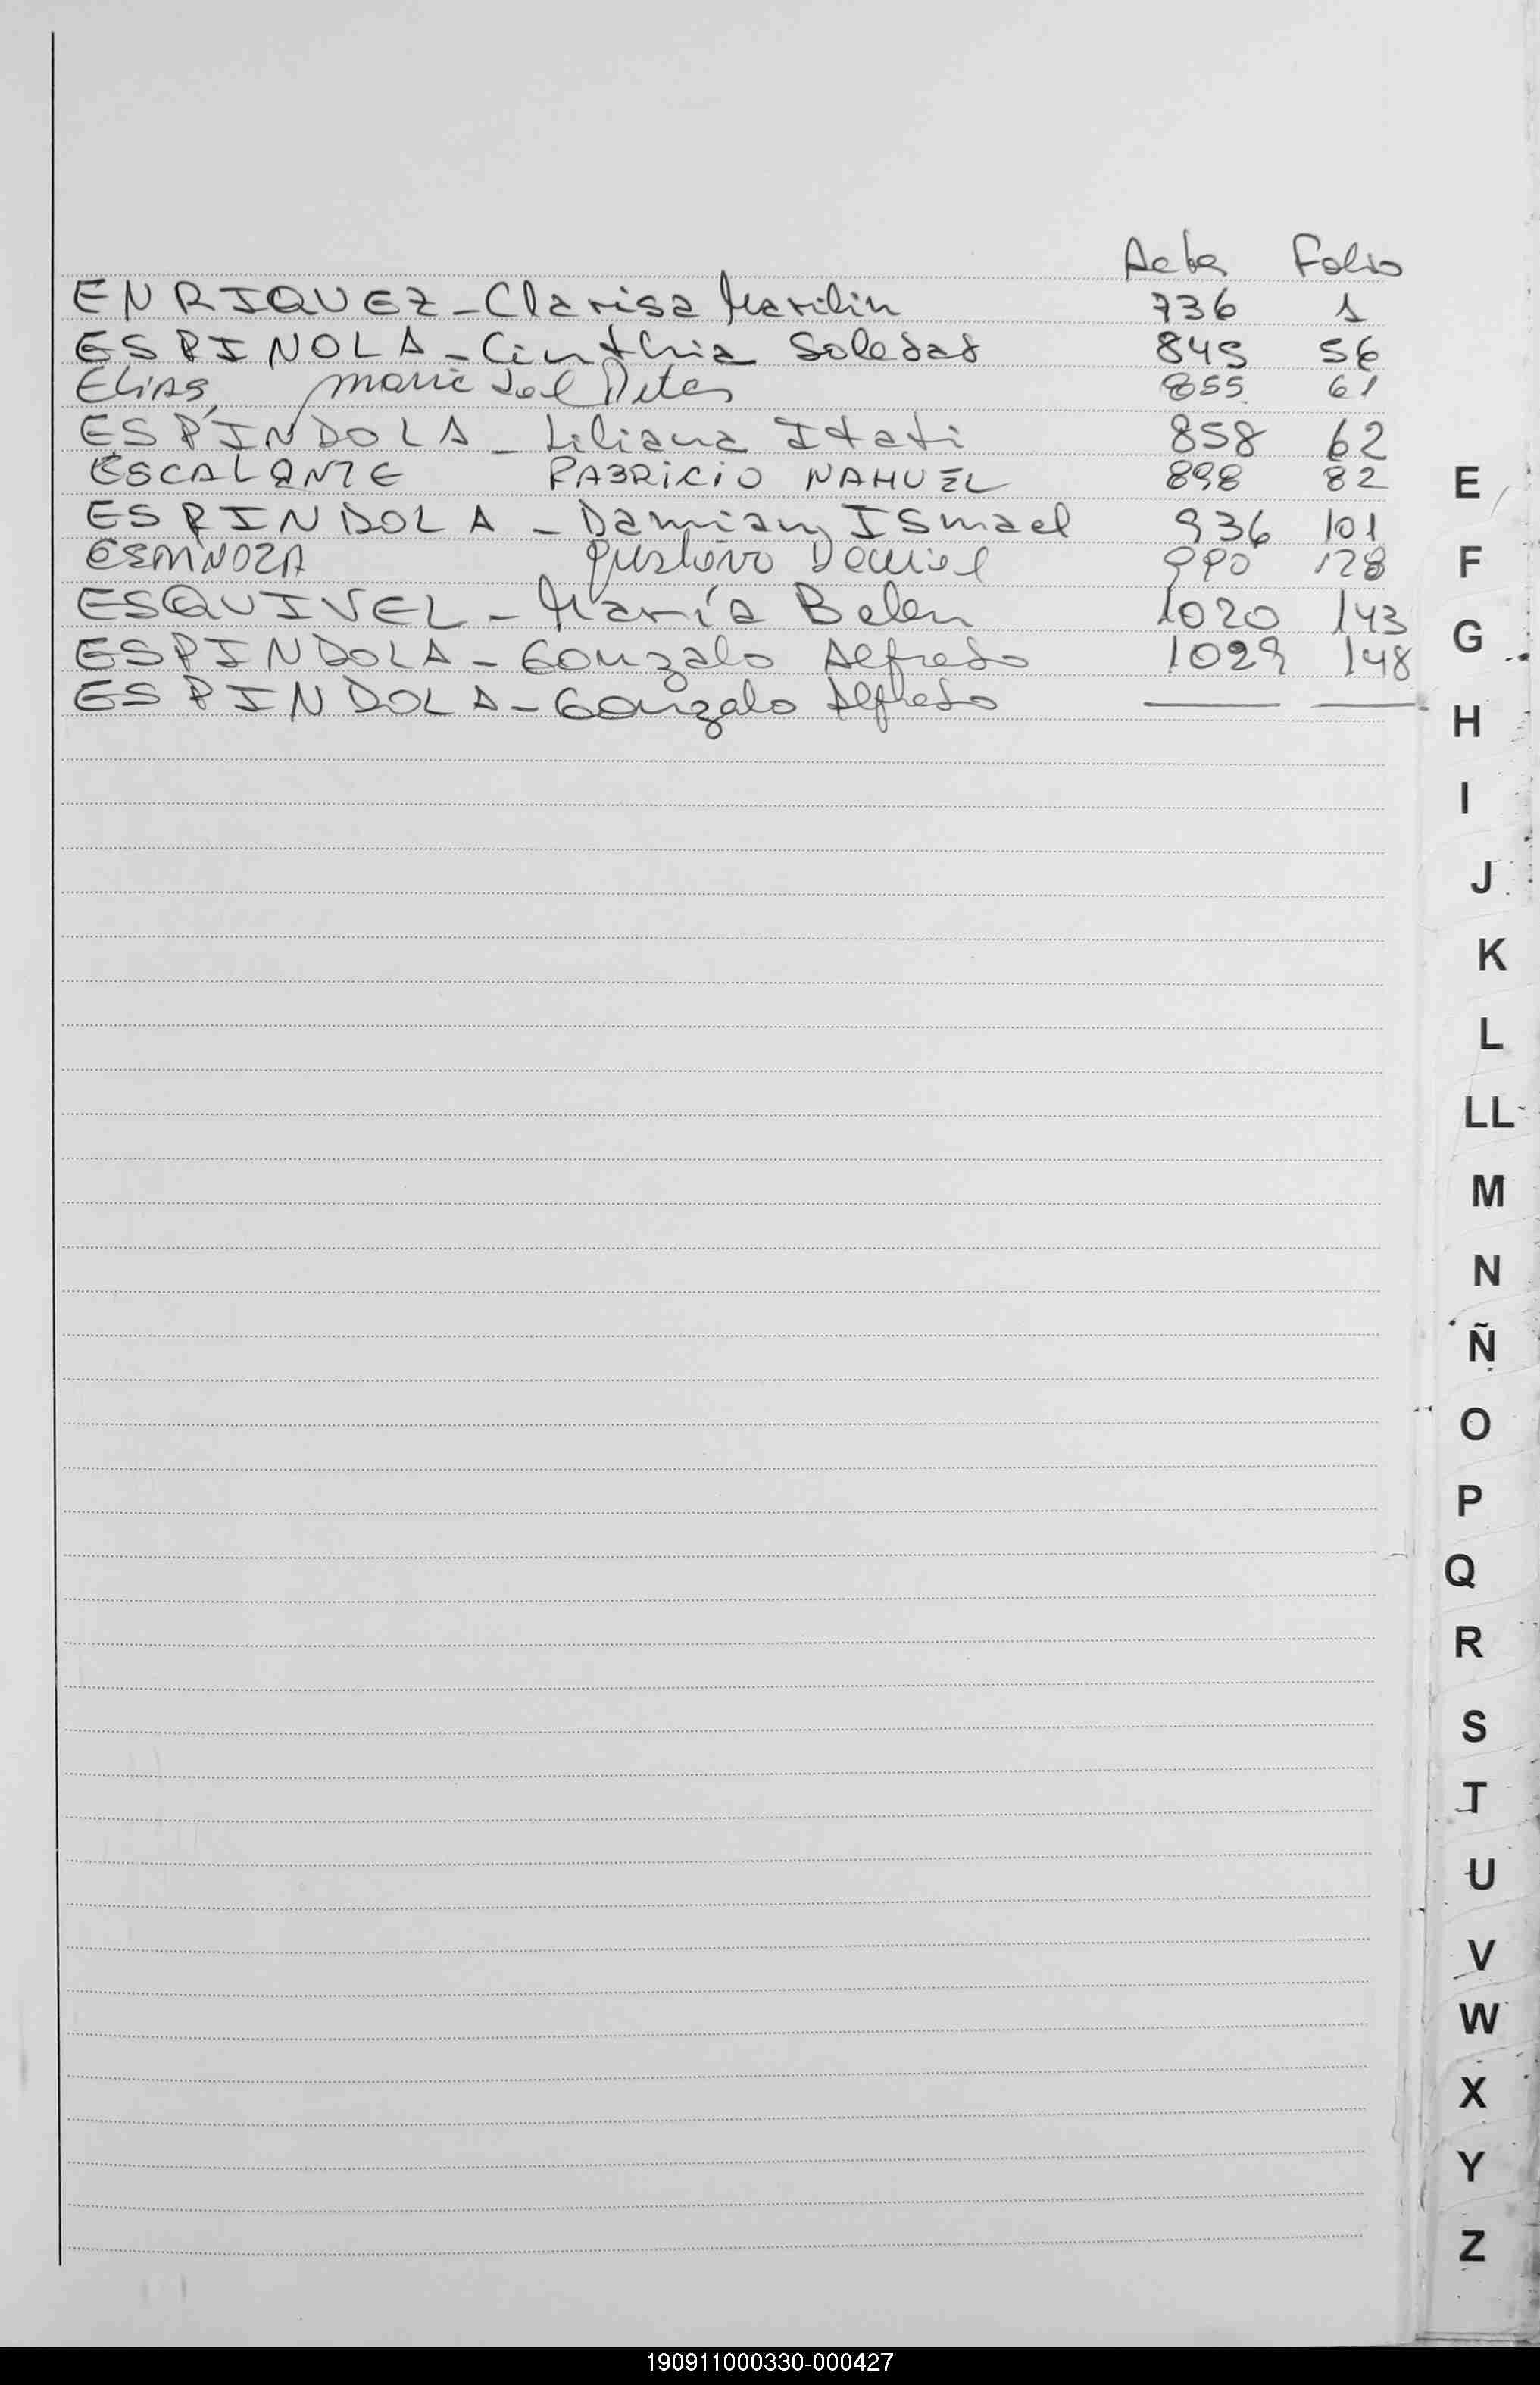 Acta Folio
ENRIQUEZ - Clarisa Marilin 736 1
ESPINOLA - Cinthia Soledad 845 56
Elias, Maria del 855 61
ESPINDOLA - Liliana Itati 858 62
ESCALANTE FABRICIO NAHUEL 898 82
ESPINDOLA - Damian, Ismael 936 101
Gustavo Daniel 990 128
ESQUIVEL - María Belen 1020 143
ESPINDOLA - Gonzalo Alfredo 1029 148
ESPINDOLA - Gonzalo Alfredo
E
F
G
H
I
J
K
L
LL
M
N
Ñ
O
P
Q
R
S
T
U
V
W
X
Y
Z
190911000330-000427